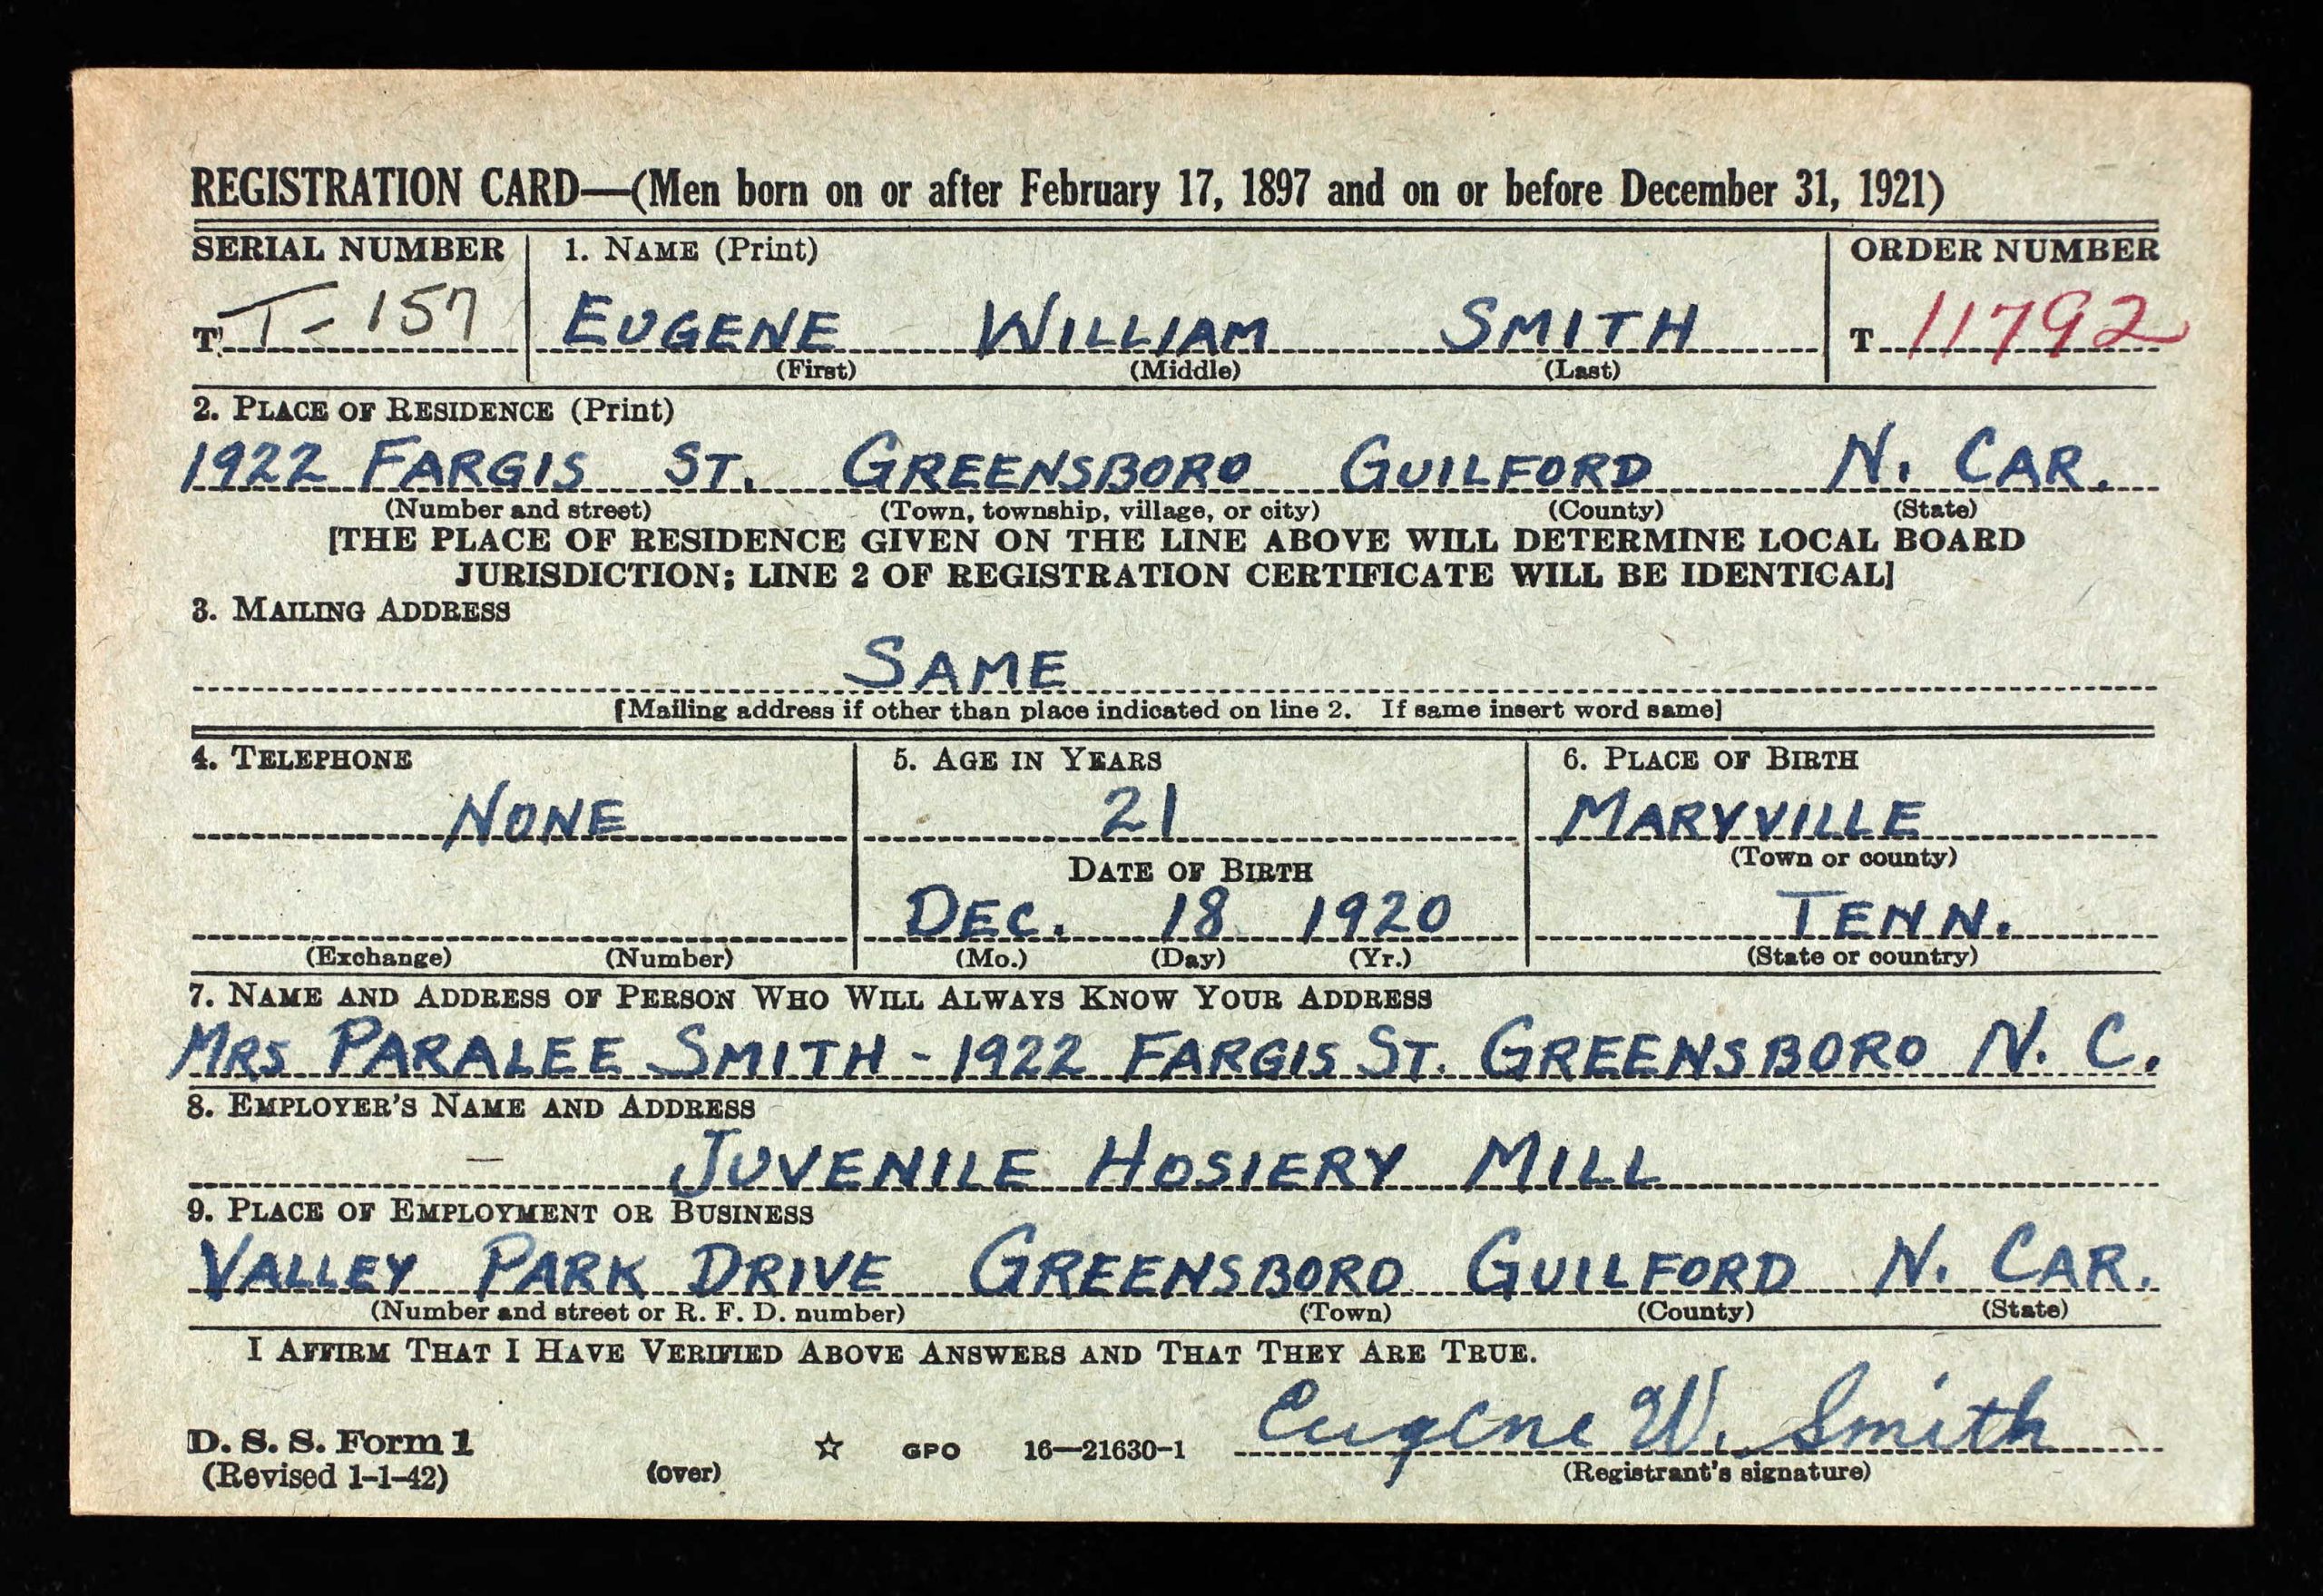 REGISTRATION CARD—(Men born on or after February 17, 1897 and on or before December 31, 1921)
SERIAL NUMBER 1. NAME (Print) ORDER NUMBER
T T-157 EUGENE WILLIAM SMITH T 11792
(First) (Middle) (Last)
2. PLACE OF RESIDENCE (Print)
1922 FARGIS ST. GREENSBORO GUILFORD N. CAR.
(Number and street) (Town, township, village, or city) (County) (State)
[THE PLACE OF RESIDENCE GIVEN ON THE LINE ABOVE WILL DETERMINE LOCAL BOARD
JURISDICTION; LINE 2 OF REGISTRATION CERTIFICATE WILL BE IDENTICAL]
3. MAILING ADDRESS
SAME
[Mailing address if other than place indicated on line 2. If same insert word same]
4. TELEPHONE 5. AGE IN YEARS 6. PLACE OF BIRTH
NONE 21 MARYVILLE
(Town or county)
DATE OF BIRTH
DEC. 18 1920 TENN.
(Exchange) (Number) (Mo.) (Day) (Yr.) (State or country)
7. NAME AND ADDRESS OF PERSON WHO WILL ALWAYS KNOW YOUR ADDRESS
MRS PARALEE SMITH - 1922 FARGIS ST. GREENSBORO N. C.
8. EMPLOYER'S NAME AND ADDRESS
JUVENILE HOSIERY MILL
9. PLACE OF EMPLOYMENT OR BUSINESS
VALLEY PARK DRIVE GREENSBORO GUILFORD N. CAR.
(Number and street or R. F. D. number) (Town) (County) (State)
I AFFIRM THAT I HAVE VERIFIED ABOVE ANSWERS AND THAT THEY ARE TRUE.
Eugene W. Smith
D. S. S. Form 1 ☆ GPO 16—21630-1
(Revised 1-1-42) (over) (Registrant's signature)